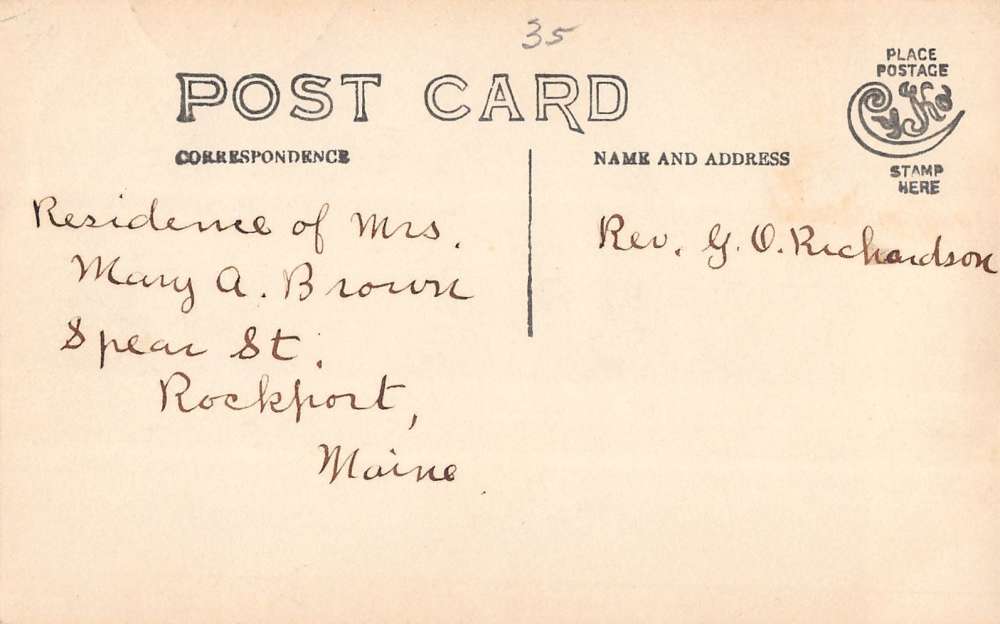 35
POST CARD
PLACE
POSTAGE
CYKO
STAMP
HERE
CORRESPONDENCE
NAME AND ADDRESS
Residence of Mrs.
Mary A. Brown
Spear St.
Rockport,
Maine
Rev. G. O. Richardson